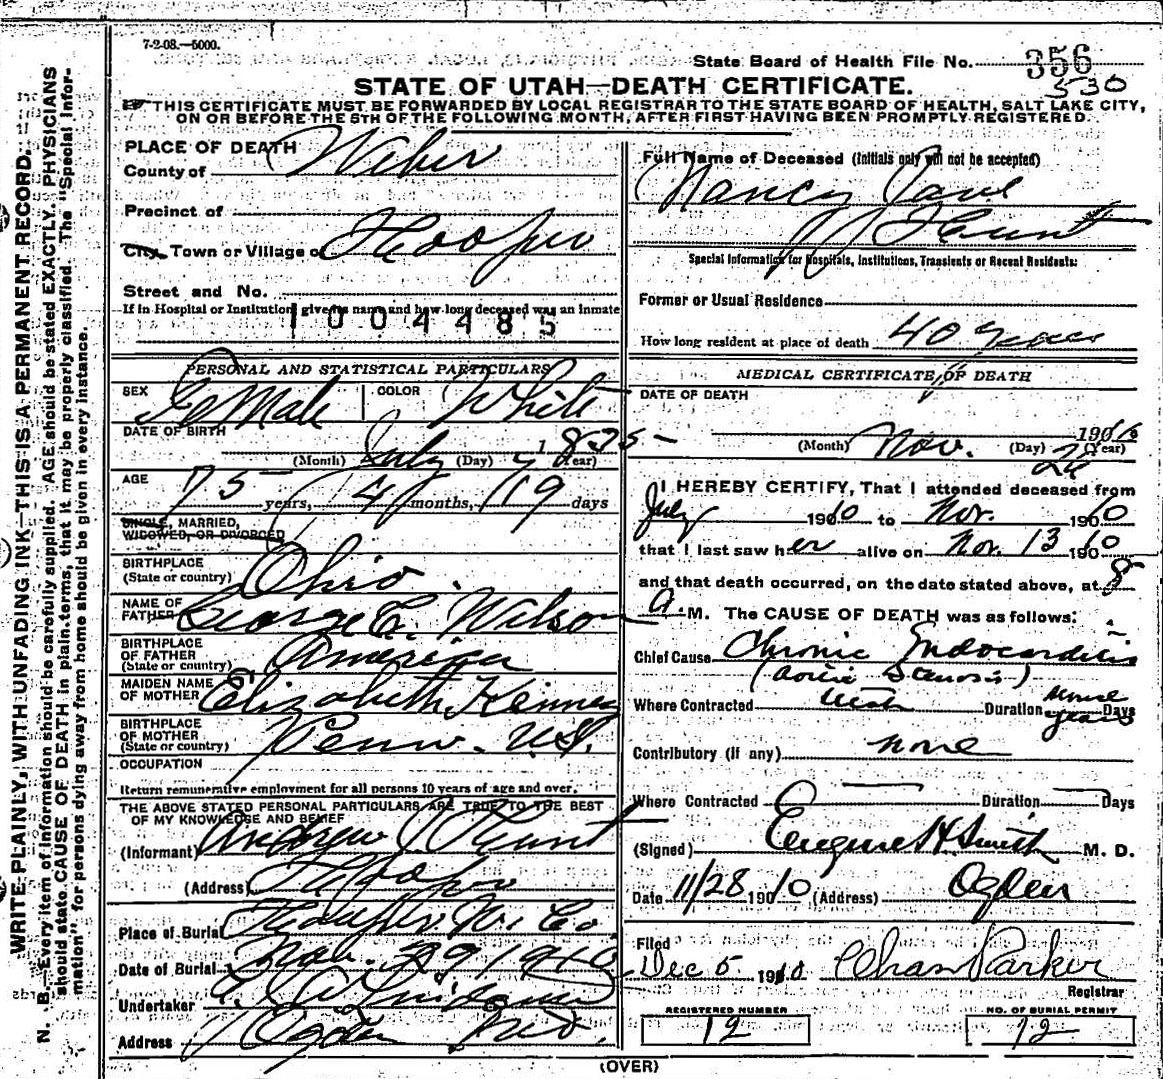 7-2-08.—5000.
State Board of Health File No. 356
530
STATE OF UTAH—DEATH CERTIFICATE.
THIS CERTIFICATE MUST BE FORWARDED BY LOCAL REGISTRAR TO THE STATE BOARD OF HEALTH, SALT LAKE CITY,
ON OR BEFORE THE 5TH OF THE FOLLOWING MONTH, AFTER FIRST HAVING BEEN PROMPTLY REGISTERED.
WRITE PLAINLY, WITH UNFADING INK—THIS IS A PERMANENT RECORD.
N. B.—Every item of information should be carefully supplied. AGE should be stated EXACTLY. PHYSICIANS
should state CAUSE OF DEATH in plain terms, that it may be properly classified. The "Special Infor-
mation" for persons dying away from home should be given in every instance.
PLACE OF DEATH
County of Weber
Precinct of
City, Town or Village of Hooper
Street and No.
If in Hospital or Institution, give its name and how long deceased was an inmate
1004485
PERSONAL AND STATISTICAL PARTICULARS
SEX Female COLOR White
DATE OF BIRTH
(Month) July (Day) 1835 (Year)
AGE 75 years, 4 months, 19 days
SINGLE, MARRIED,
WIDOWED, OR DIVORCED
BIRTHPLACE
(State or country) Ohio
NAME OF
FATHER George C. Wilson
BIRTHPLACE
OF FATHER
(State or country) America
MAIDEN NAME
OF MOTHER Elizabeth Kinney
BIRTHPLACE
OF MOTHER
(State or country) Penn. U.S.
OCCUPATION
Return remunerative employment for all persons 10 years of age and over.
THE ABOVE STATED PERSONAL PARTICULARS ARE TRUE TO THE BEST
OF MY KNOWLEDGE AND BELIEF
(Informant) Andrew J Hunt
(Address) Hooper
Place of Burial Hooper W. Co.
Date of Burial Nov. 29 1910
Undertaker
Address Ogden
Full Name of Deceased (Initials only will not be accepted)
Nancy Jane
Hunt
Special Information for Hospitals, Institutions, Transients or Recent Residents:
Former or Usual Residence
How long resident at place of death 40 years
MEDICAL CERTIFICATE OF DEATH
DATE OF DEATH
(Month) Nov. (Day) 26 1910 (Year)
I HEREBY CERTIFY, That I attended deceased from
July 1910 to Nov. 1910
that I last saw her alive on Nov. 13 1910
and that death occurred, on the date stated above, at 8
A. M. The CAUSE OF DEATH was as follows:
Chief Cause Chronic Endocarditis
(aortic stenosis)
Where Contracted Utah Duration some years Days
Contributory (if any) none
Where Contracted Duration Days
(Signed) Eugene H. Smith M. D.
Date 11/28 1910 (Address) Ogden
Filed
Dec 5 1910 Chas Parker
Registrar
REGISTERED NUMBER
12
NO. OF BURIAL PERMIT
12
(OVER)